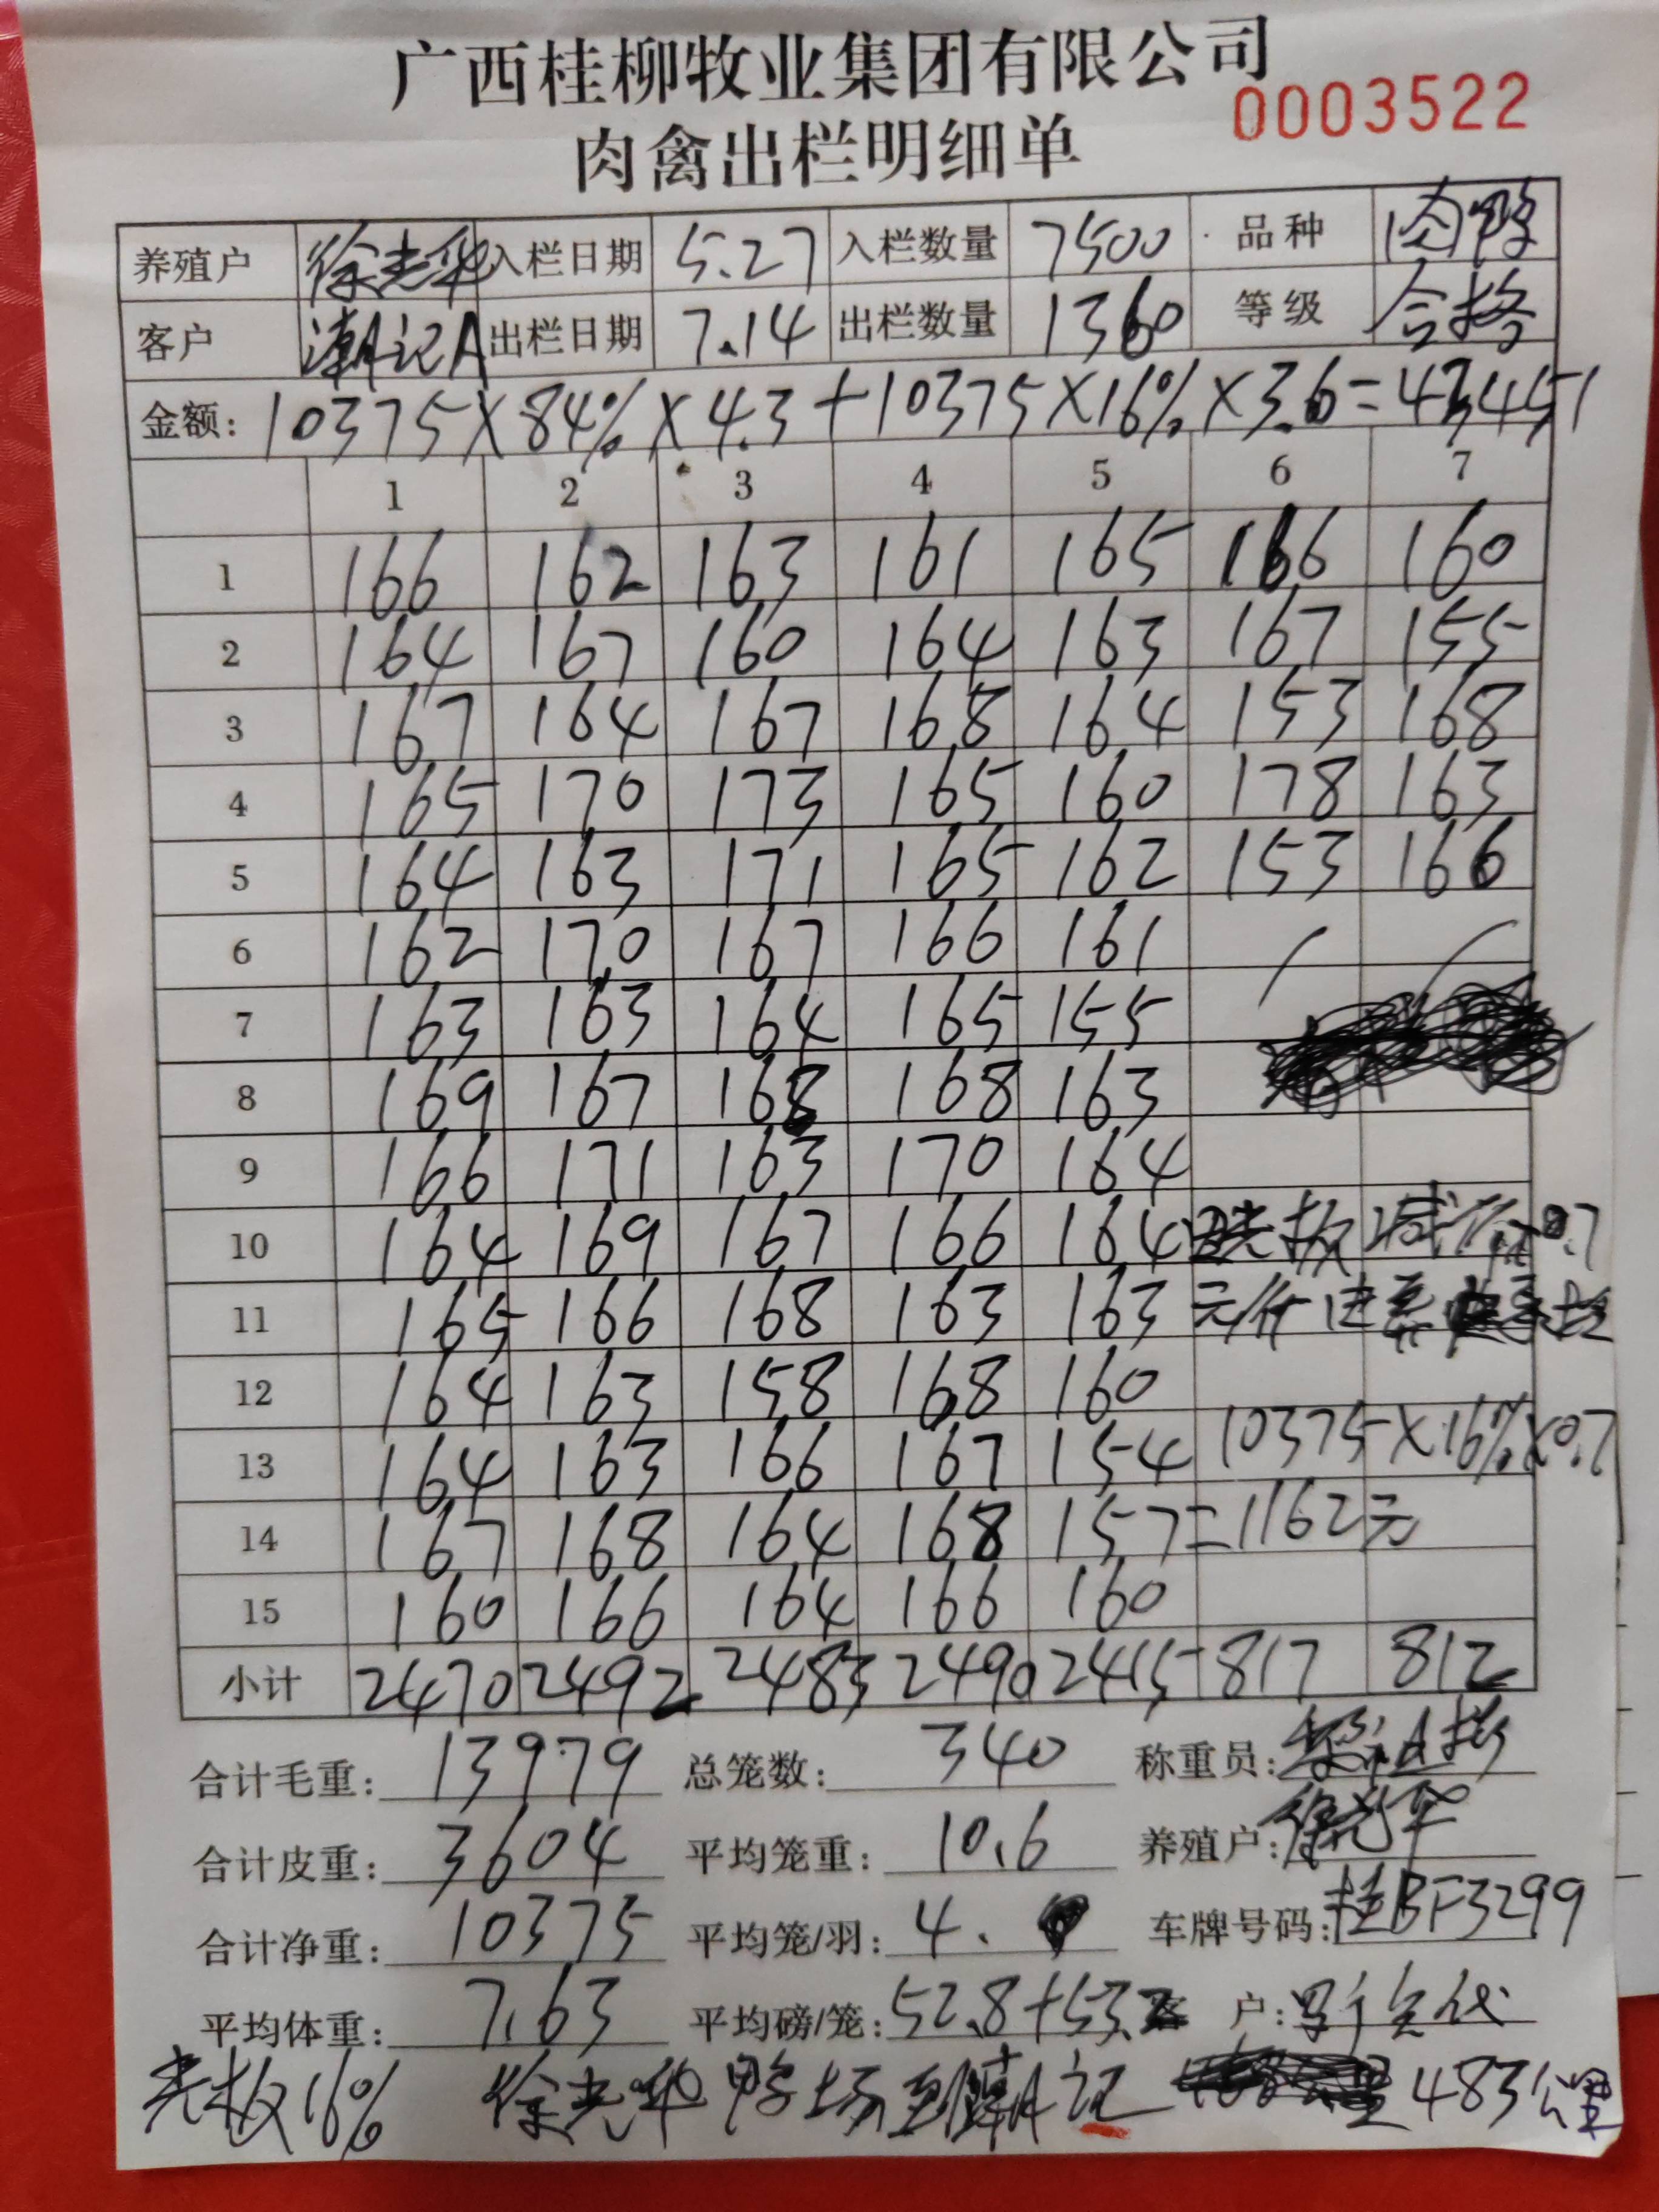 广西桂柳牧业集团有限公司
0003522
肉禽出栏明细单
养殖户 徐光华 入栏日期 5.27 入栏数量 7500 品种 肉鸭
客户 潮记A 出栏日期 7.14 出栏数量 1360 等级 合格
金额: 10375×84%×4.3+10375×16%×3.6=43451
1 2 3 4 5 6 7
1 166 162 163 161 165 166 160
2 164 167 160 164 163 167 155
3 167 164 167 168 164 153 168
4 165 170 173 165 160 178 163
5 164 163 171 165 162 153 166
6 162 170 167 166 161
7 163 163 164 165 155
8 169 167 168 168 163
9 166 171 163 170 164
10 164 169 167 166 164 光板减价0.7
11 165 166 168 163 163 元/斤
12 164 163 158 168 160
13 164 163 166 167 154 10375×16%×0.7
14 167 168 164 168 157 =1162元
15 160 166 164 166 160
小计 2470 2492 2483 2490 2415 817 812
合计毛重: 13979 总笼数: 340 称重员:
合计皮重: 3604 平均笼重: 10.6 养殖户: 徐光华
合计净重: 10375 平均笼/羽: 4. 车牌号码: 桂BF3299
平均体重: 7.63 平均磅/笼: 52.8+53.2 客 户:
光板16% 徐光华鸭场到潮记 483公里